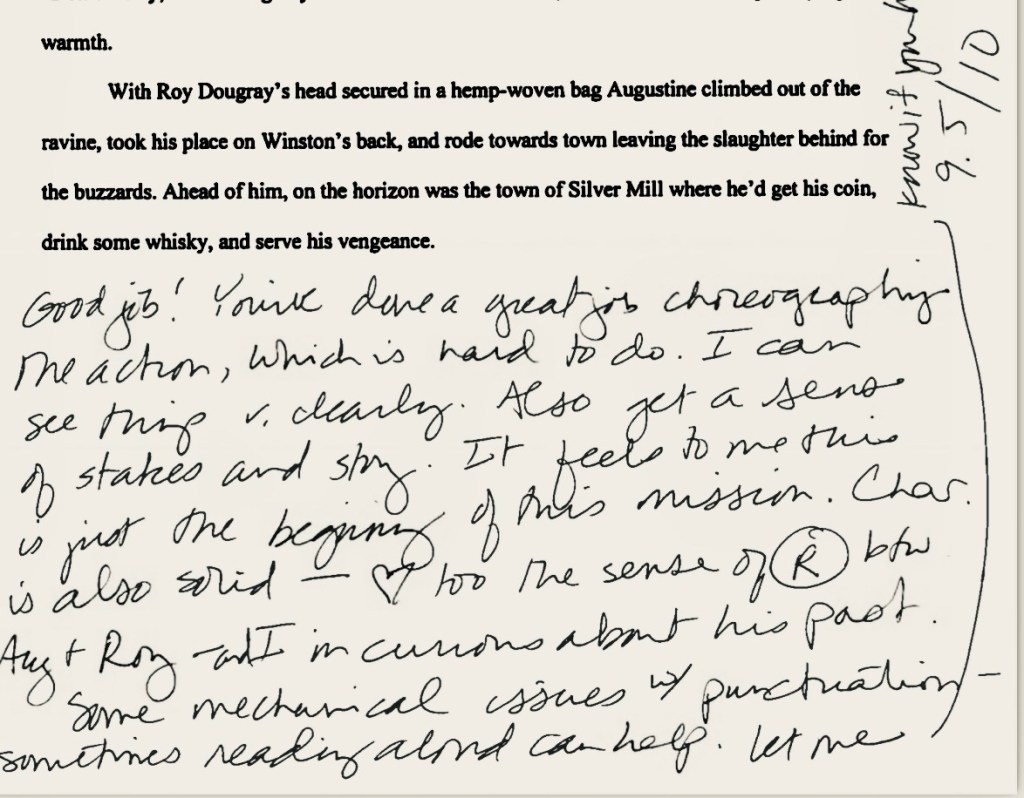 warmth.
With Roy Dougray's head secured in a hemp-woven bag Augustine climbed out of the
ravine, took his place on Winston's back, and rode towards town leaving the slaughter behind for
the buzzards. Ahead of him, on the horizon was the town of Silver Mill where he'd get his coin,
drink some whisky, and serve his vengeance.
Good job! You've done a great job choreographing
the action, which is hard to do. I can
see things v. clearly. Also get a sense
of stakes and story. It feels to me this
is just the beginning of this mission. Char.
is also solid — ♡ too the sense of R btw
Aug + Roy - and I'm curious about his past.
Some mechanical issues w/ punctuation -
sometimes reading aloud can help. Let me
know if you
9.5/10